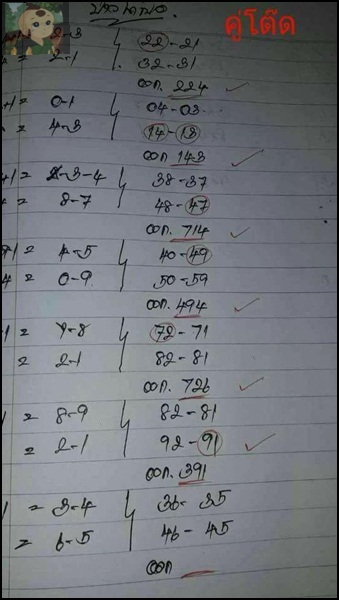 คู่โต๊ด
2-3 22-21
= 2-1 32-31
ออก. 224
+1 = 0-1 04-03
= 4-3 14-13
ออก 143
+1 = 3-4 38-37
= 8-7 48-47
ออก. 714
+1 = 4-5 40-49
4 = 0-9 50-59
ออก. 494
1 = 7-8 72-71
= 2-1 82-81
ออก. 726
1 = 8-9 82-81
= 2-1 92-91
ออก. 391
1 = 3-4 36-35
= 6-5 46-45
ออก